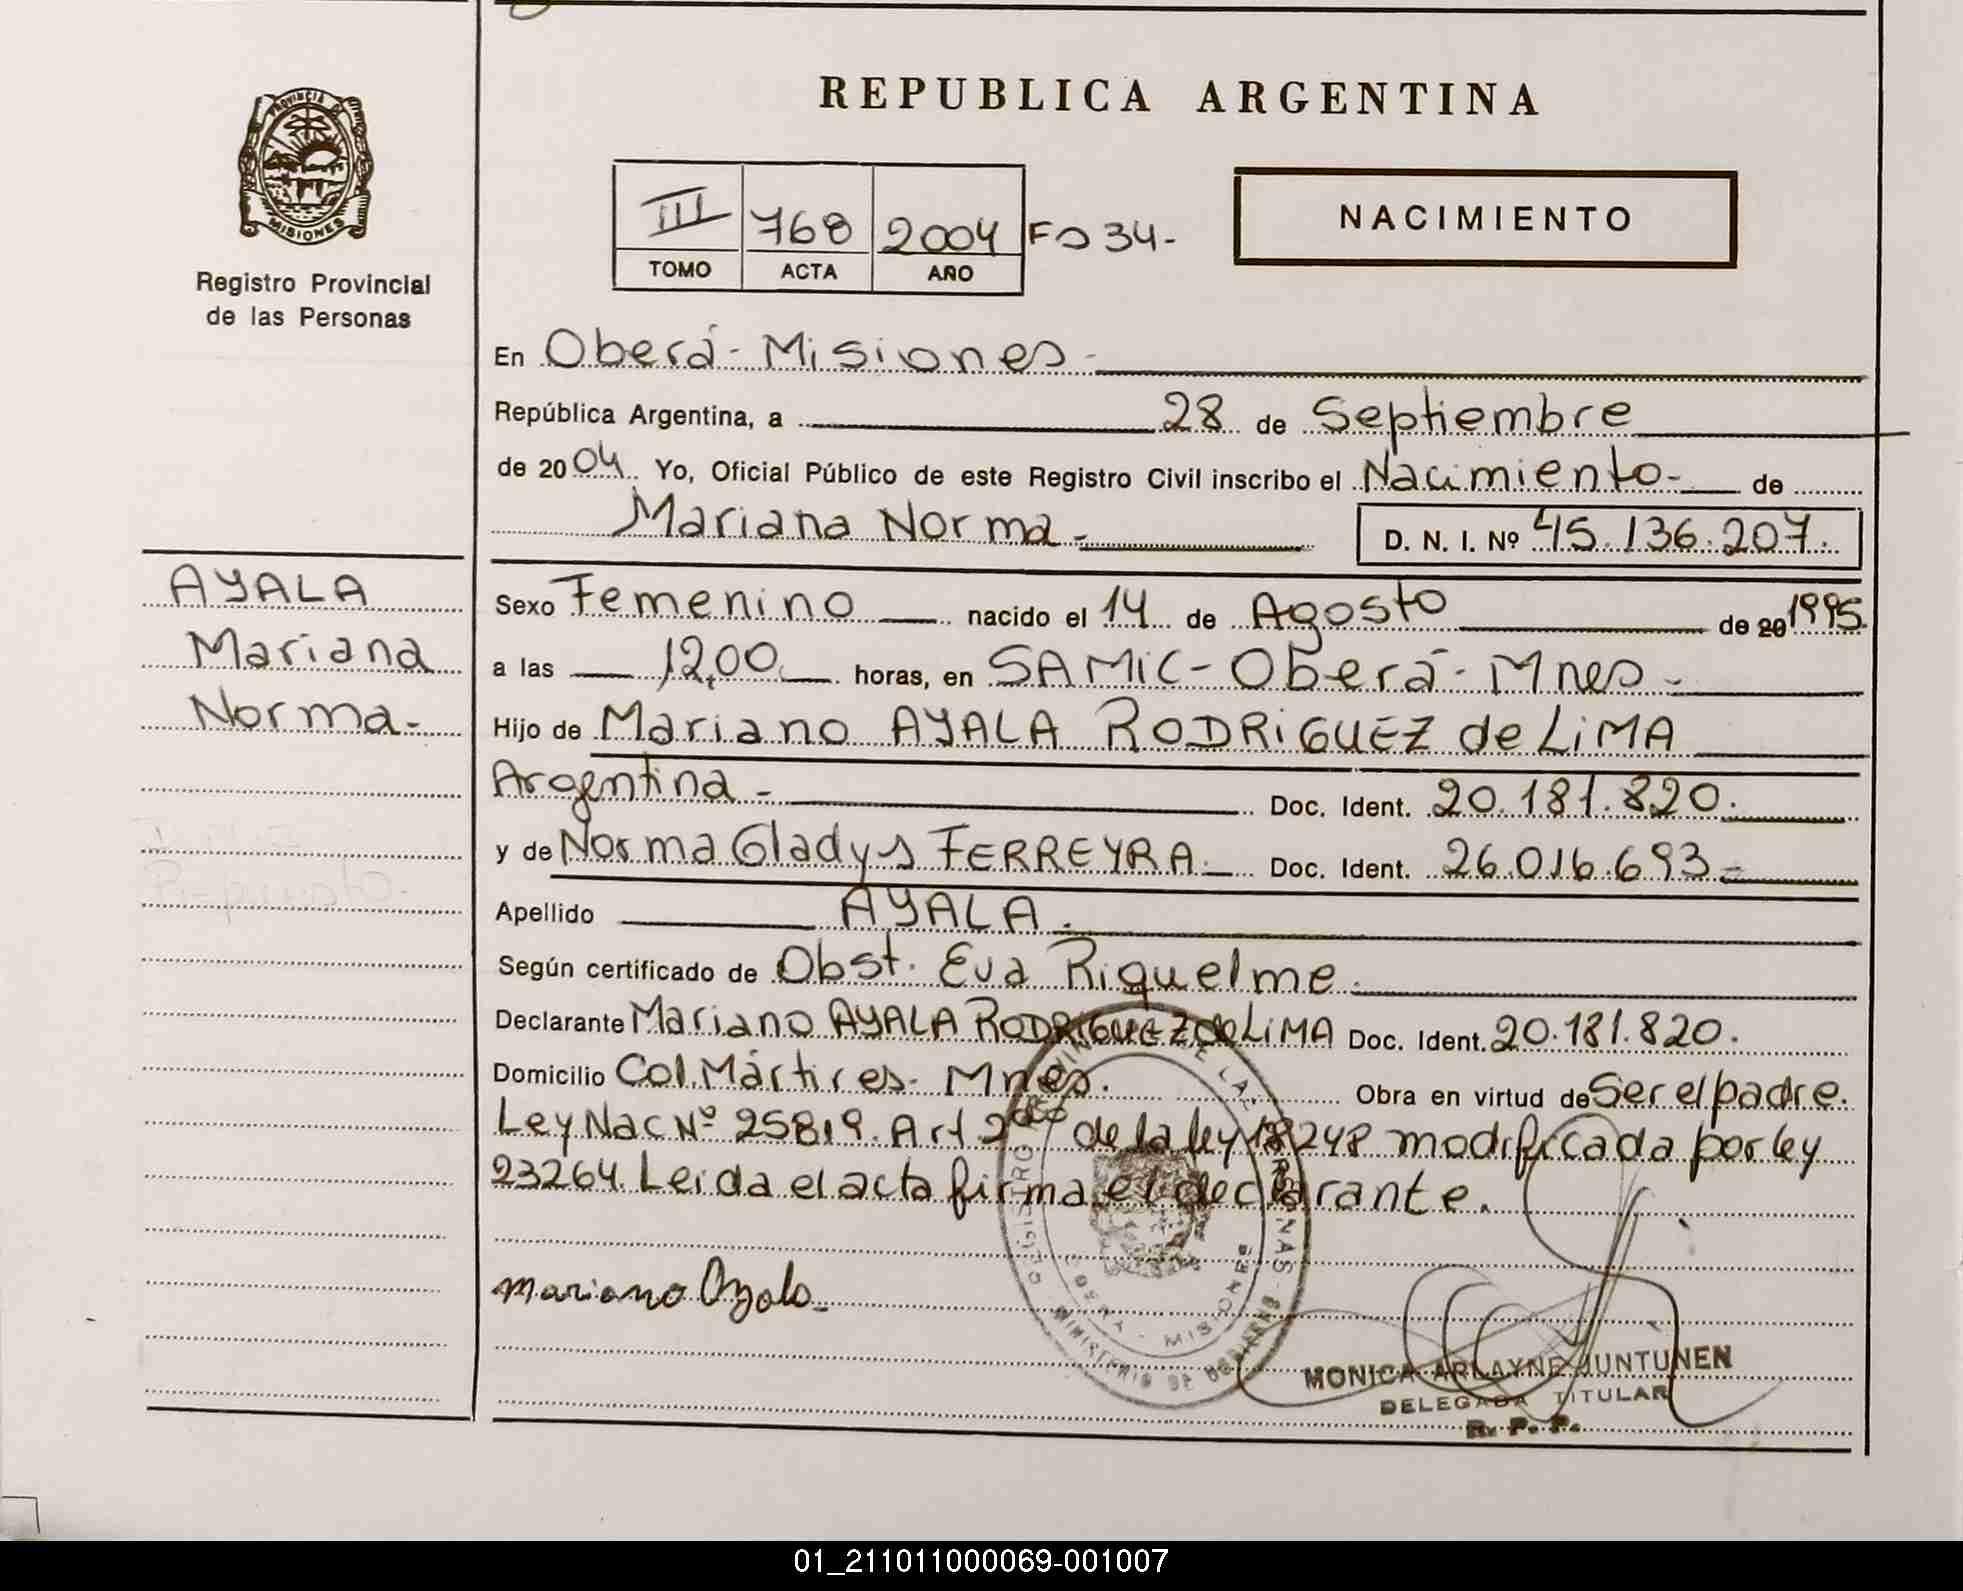 REPUBLICA ARGENTINA
PROVINCIA DE MISIONES
Registro Provincial
de las Personas
III 768 2004 Fo 34-
TOMO ACTA AÑO
NACIMIENTO
En Oberá - Misiones -
República Argentina, a 28 de Septiembre
de 2004 Yo, Oficial Público de este Registro Civil inscribo el Nacimiento- de
Mariana Norma - D. N. I. Nº 45.136.207.
AYALA
Mariana
Norma-
Sexo Femenino nacido el 14 de Agosto de 20 1995
a las 12,00 horas, en SAMIC - Oberá - Mnes -
Hijo de Mariano AYALA RODRIGUEZ de LIMA
Argentina - Doc. Ident. 20.181.820.
y de Norma Gladys FERREYRA. Doc. Ident. 26.016.693 -
Apellido AYALA.
Según certificado de Obst. Eva Riquelme.
Declarante Mariano AYALA RODRIGUEZ de LIMA Doc. Ident. 20.181.820.
Domicilio Col. Mártires - Mnes. Obra en virtud de Ser el padre.
Ley Nac Nº 25819. Art 2do de la ley 18248 modificada por ley
23264. Leida el acta firma el declarante.
Mariano Ayala
MONICA ARLAYNE JUNTUNEN
DELEGADA TITULAR
R. P. P.
01_211011000069-001007